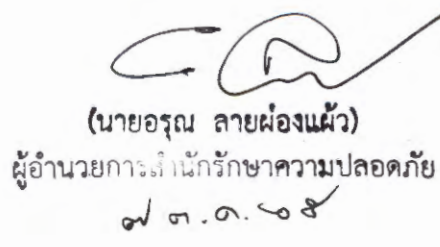 (นายอรุณ ลายผ่องแผ้ว)
ผู้อำนวยการสำนักรักษาความปลอดภัย
๗ ต.ค. ๖๕